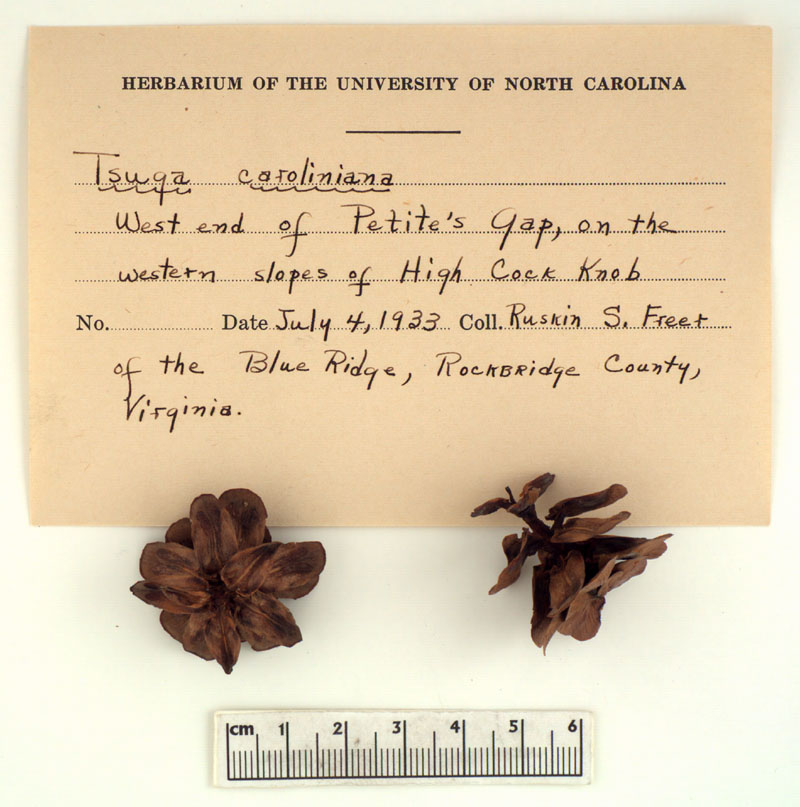 HERBARIUM OF THE UNIVERSITY OF NORTH CAROLINA
Tsuga caroliniana
West end of Petite's Gap, on the
western slopes of High Cock Knob
No. Date July 4, 1933 Coll. Ruskin S. Freer
of the Blue Ridge, Rockbridge County,
Virginia.
cm 1 2 3 4 5 6